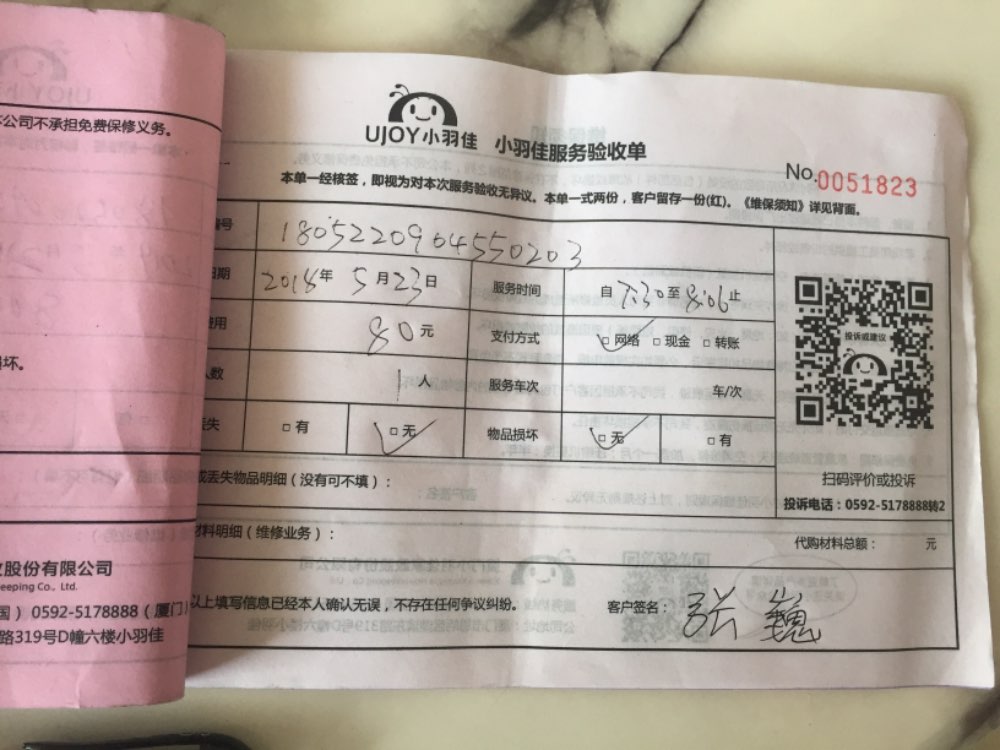 公司不承担免费保修义务。
UJOY小羽佳 小羽佳服务验收单
No.0051823
本单一经核签，即视为对本次服务验收无异议。本单一式两份，客户留存一份(红)。《维保须知》详见背面。
编号 1805220904550203
日期 2018年 5月23日 服务时间 自7:30至8:06止
费用 80元 支付方式 □网络 □现金 □转账
人数 1人 服务车次 车/次
丢失 □有 □无 物品损坏 □无 □有
投诉或建议
扫码评价或投诉
投诉电话：0592-5178888转2
损坏。
或丢失物品明细（没有可不填）：
材料明细（维修业务）：
代购材料总额： 元
股份有限公司
eeping Co., Ltd.
以上填写信息已经本人确认无误，不存在任何争议纠纷。
客户签名：张巍
国） 0592-5178888（厦门）
路319号D幢六楼小羽佳